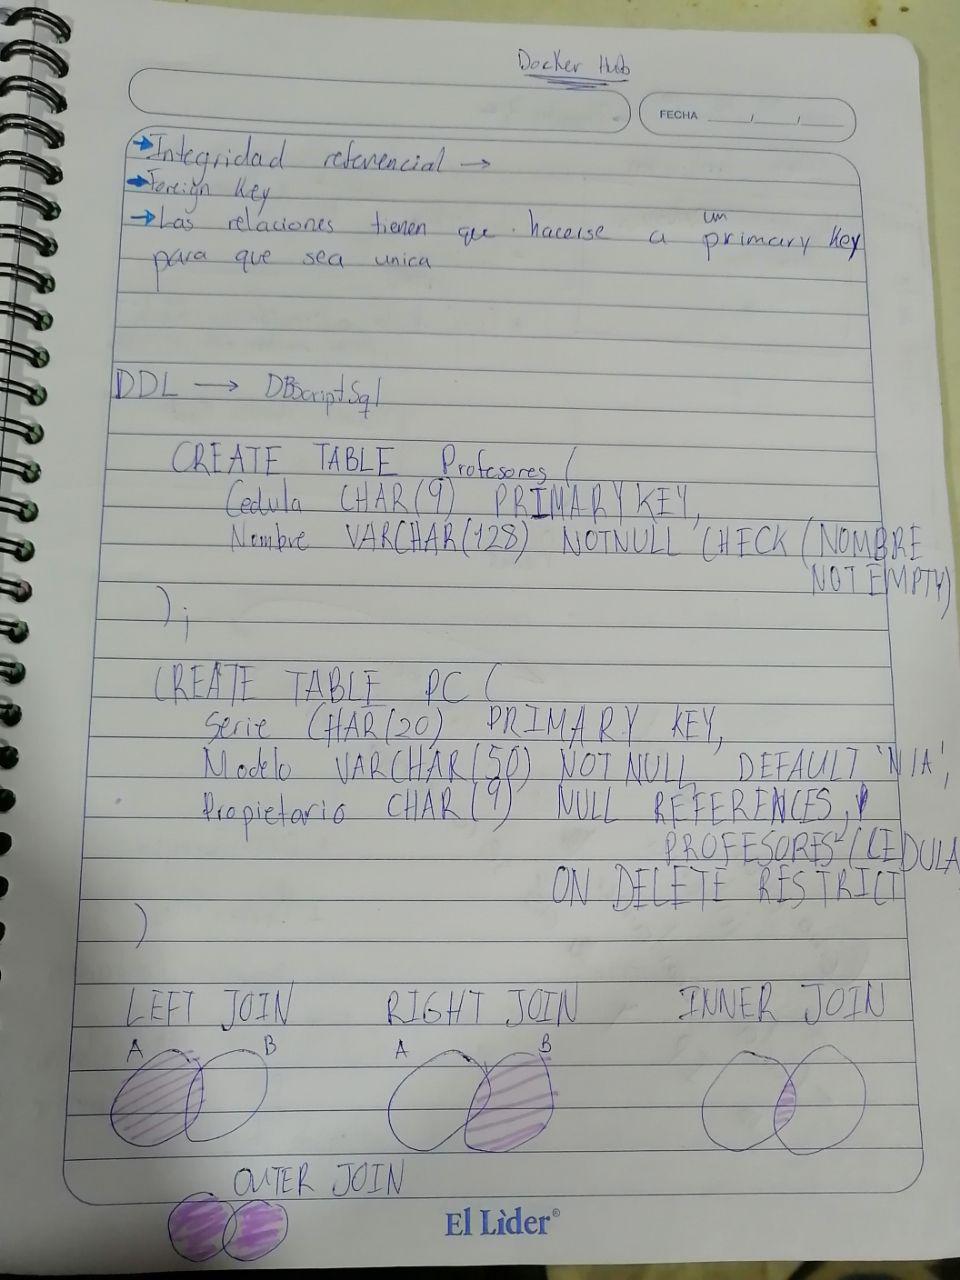 Docker Hub
FECHA ___/___/___
→Integridad referencial →
→Foreign Key
→Las relaciones tienen que hacerse a un primary Key
para que sea unica
DDL → DBScriptSql
CREATE TABLE Profesores (
Cedula CHAR(9) PRIMARY KEY,
Nombre VARCHAR(128) NOTNULL CHECK (NOMBRE
NOT EMPTY)
);
CREATE TABLE PC (
Serie CHAR(20) PRIMARY KEY,
Modelo VARCHAR(50) NOT NULL DEFAULT 'N/A',
Propietario CHAR(9) NULL REFERENCES
PROFESORES (CEDULA
ON DELETE RESTRICT
)
LEFT JOIN RIGHT JOIN INNER JOIN
A B A B
OUTER JOIN
El Lìder®